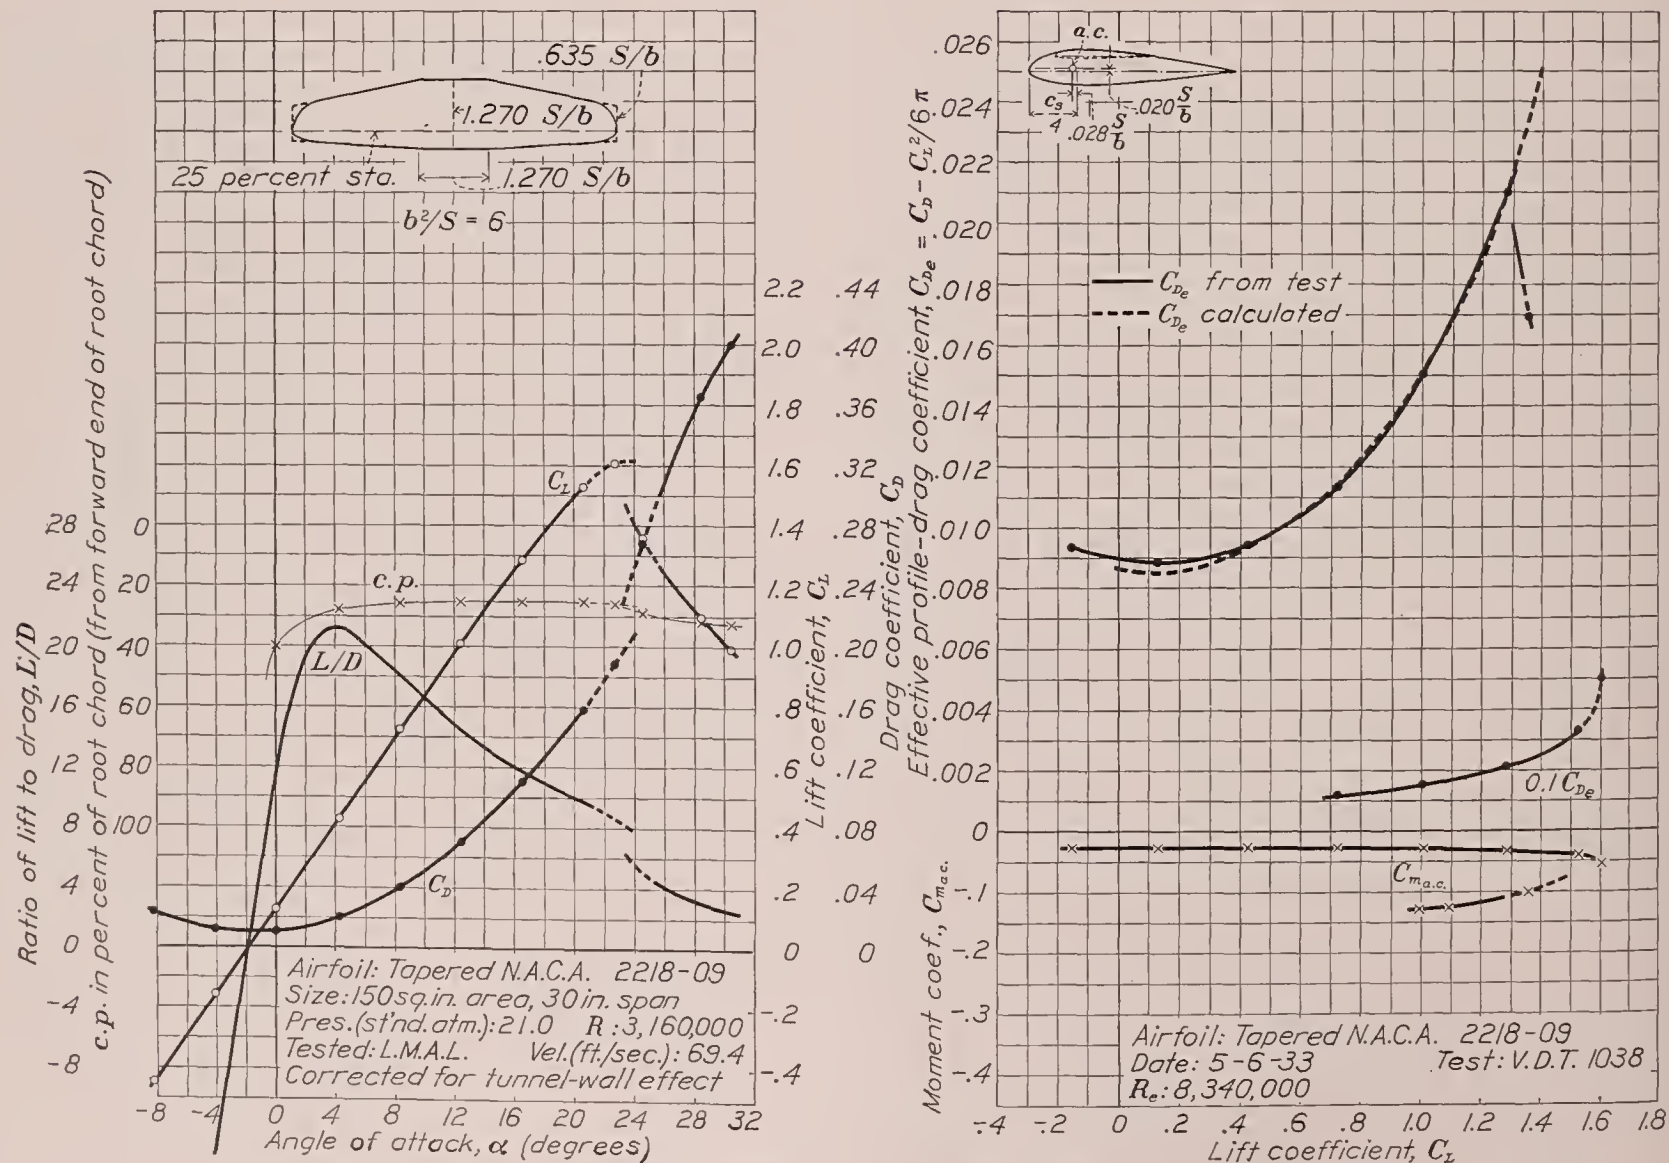 .635 S/b
1.270 S/b
25 percent sta.
1.270 S/b
b²/S = 6
Ratio of lift to drag, L/D
28
24
20
16
12
8
4
0
-4
-8
c.p. in percent of root chord (from forward end of root chord)
0
20
40
60
80
100
C_L
c.p.
L/D
C_D
2.2
2.0
1.8
1.6
1.4
1.2
1.0
.8
.6
.4
.2
0
-.2
-.4
Lift coefficient, C_L
.44
.40
.36
.32
.28
.24
.20
.16
.12
.08
.04
0
Drag coefficient, C_D
Airfoil: Tapered N.A.C.A. 2218-09
Size: 150 sq.in. area, 30 in. span
Pres.(st'nd. atm.): 21.0 R: 3,160,000
Tested: L.M.A.L. Vel.(ft./sec.): 69.4
Corrected for tunnel-wall effect
-8 -4 0 4 8 12 16 20 24 28 32
Angle of attack, α (degrees)
Effective profile-drag coefficient, C_De = C_D - C_L²/6π
.026
.024
.022
.020
.018
.016
.014
.012
.010
.008
.006
.004
.002
0
Moment coef., C_m a.c.
-.1
-.2
-.3
-.4
a.c.
c_s/4
.028 S/b
.020 S/b
C_De from test
C_De calculated
0.1 C_De
C_m a.c.
Airfoil: Tapered N.A.C.A. 2218-09
Date: 5-6-33 Test: V.D.T. 1038
R_e: 8,340,000
-.4 -.2 0 .2 .4 .6 .8 1.0 1.2 1.4 1.6 1.8
Lift coefficient, C_L